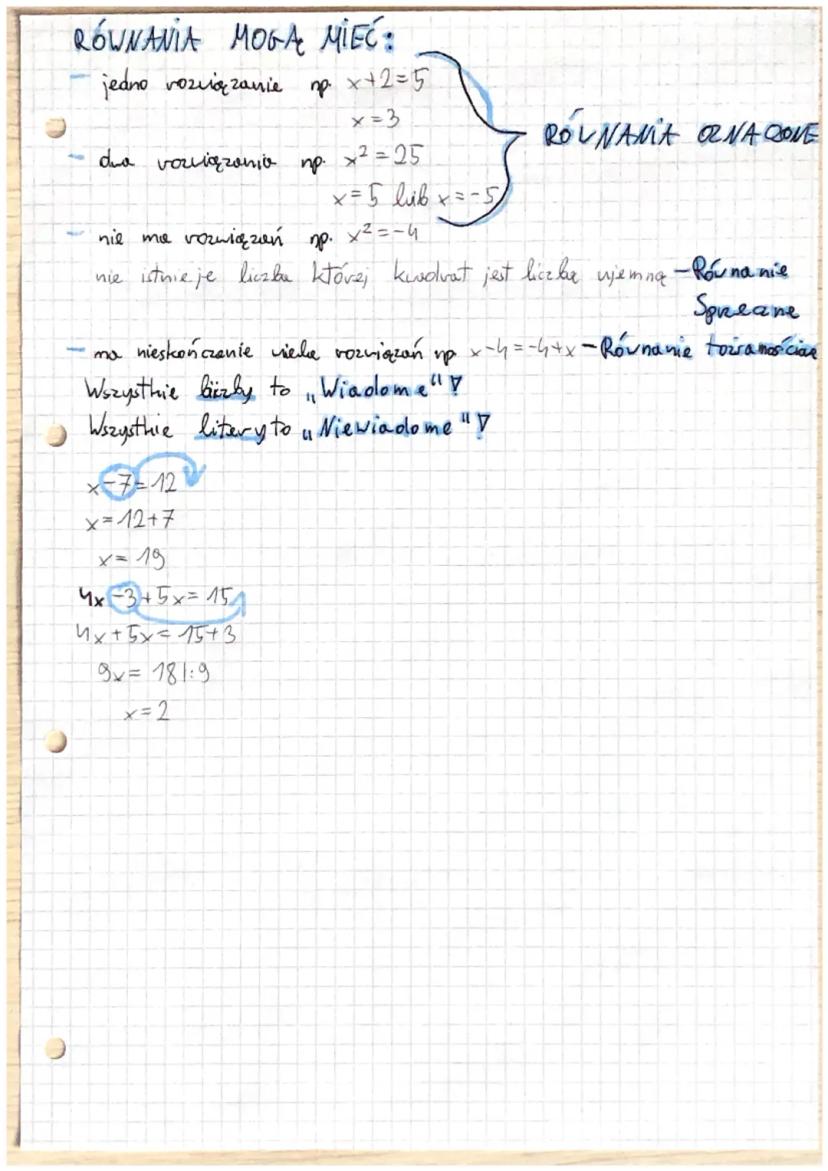 RÓWNANIA MOGĄ MIEĆ:
- jedno rozwiązanie np. x+2=5
x=3
RÓWNANIA OZNACZONE
- dwa rozwiązania np. x²=25
x=5 lub x=-5
- nie ma rozwiązań np. x²=-4
nie istnieje liczba której kwadrat jest liczbą ujemną - Równanie
Sprzeczne
- ma nieskończenie wiele rozwiązań np x-4=-4+x - Równanie tożsamościowe
Wszystkie liczby to „Wiadome"!
Wszystkie litery to „Niewiadome"!
x-7=12
x=12+7
x=19
4x-3+5x=15
4x+5x=15+3
9x=18|:9
x=2